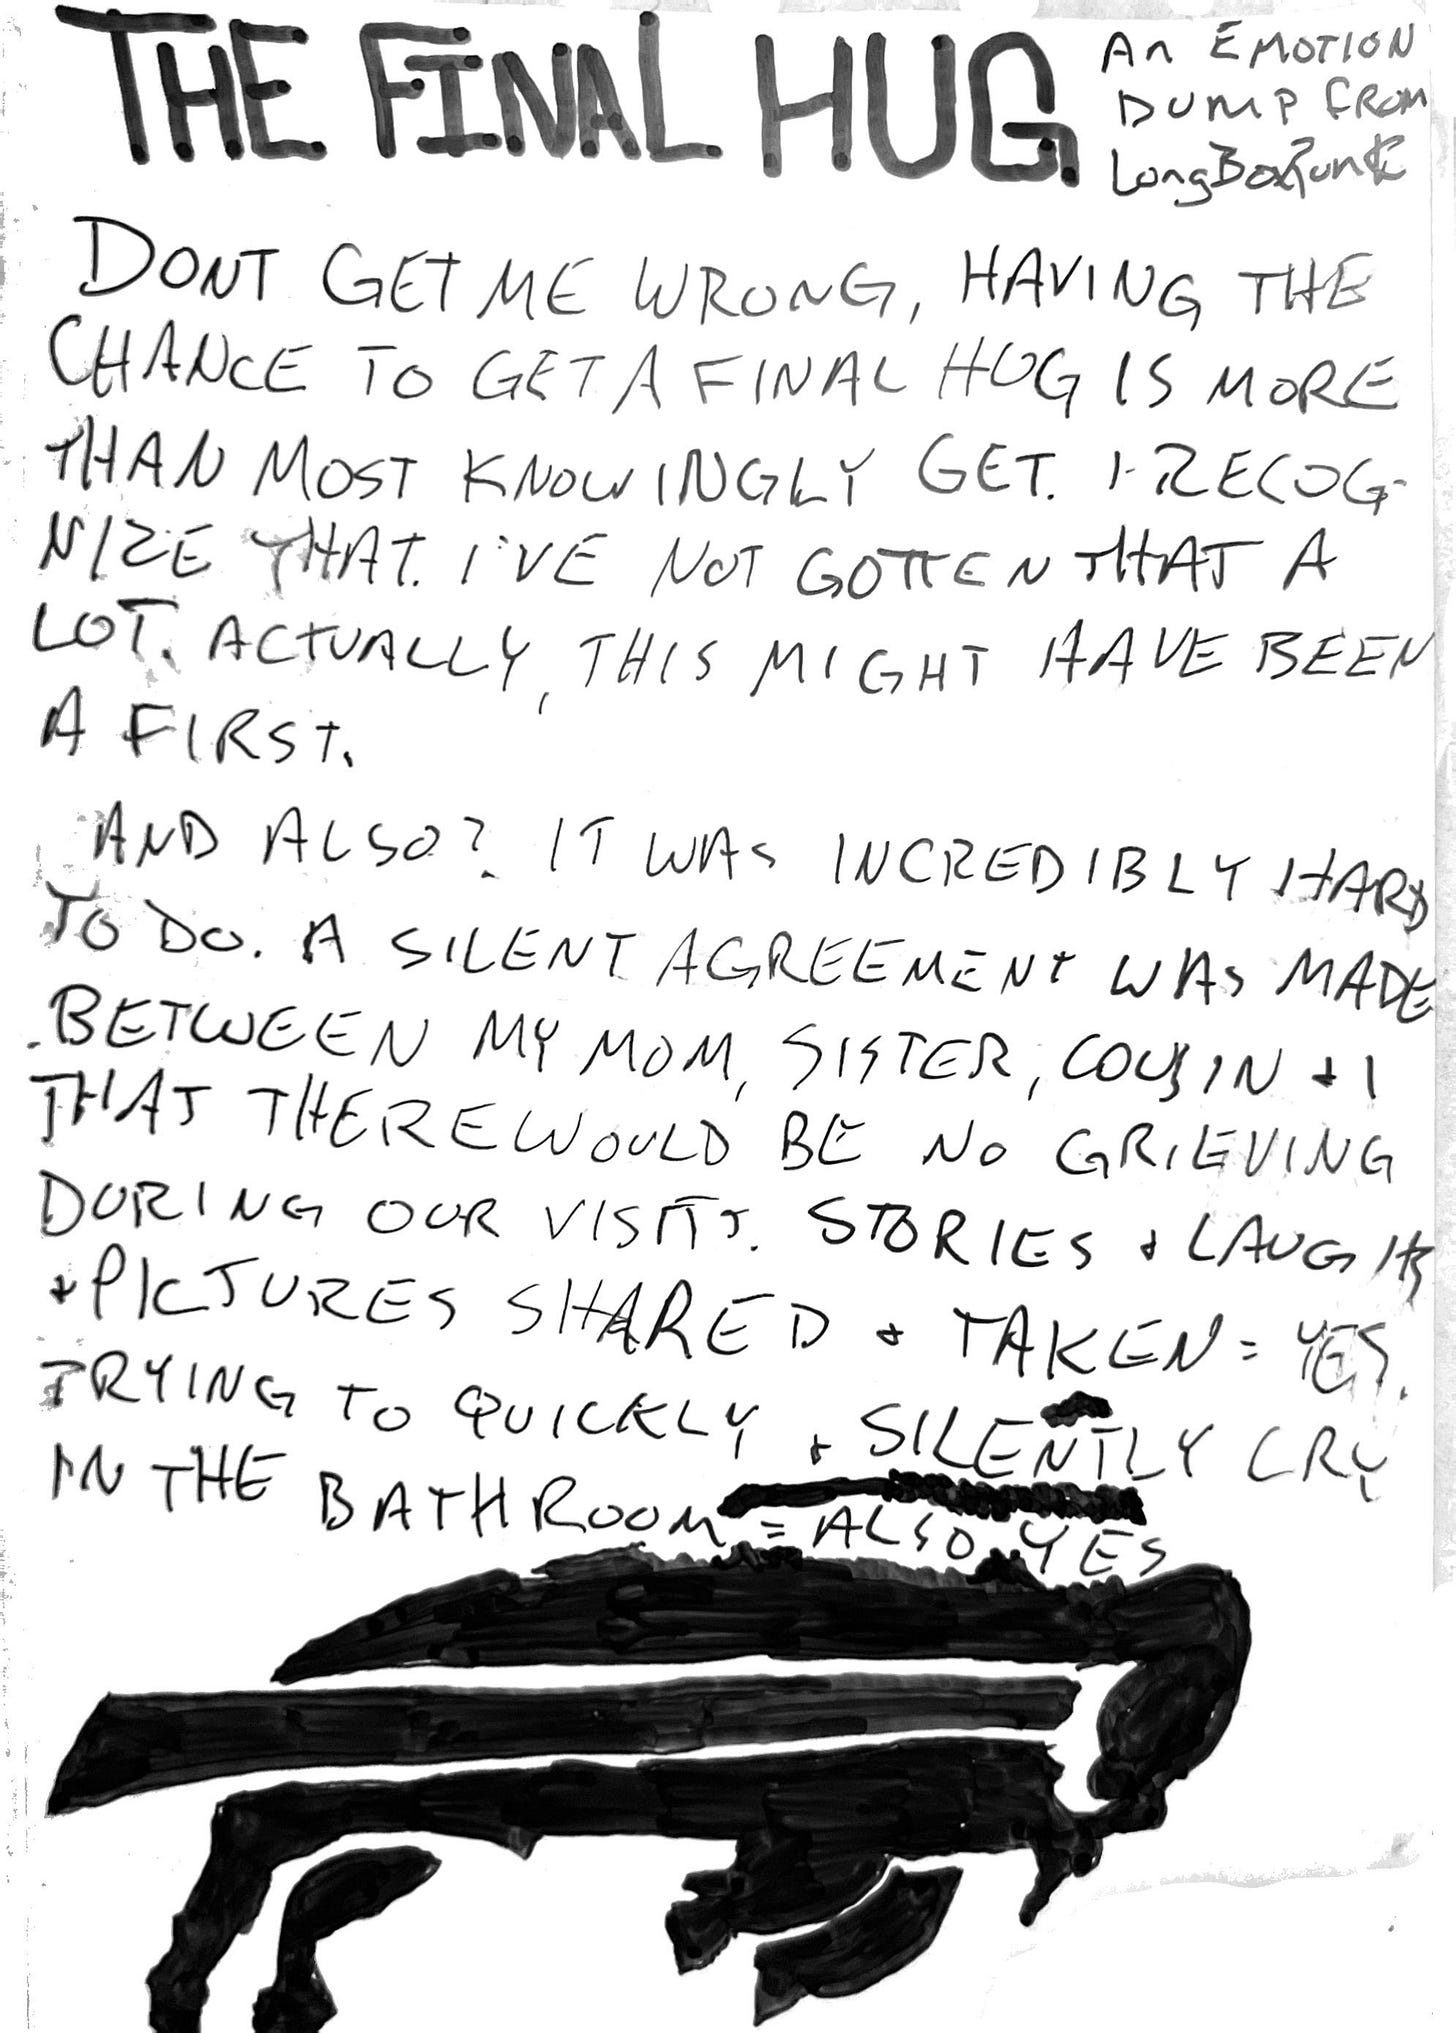 THE FINAL HUG
An EMOTION
DUMP FROM
LongBoxJunk
DONT GET ME WRONG, HAVING THE
CHANCE TO GET A FINAL HUG IS MORE
THAN MOST KNOWINGLY GET. I RECOG-
NIZE THAT. I'VE NOT GOTTEN THAT A
LOT. ACTUALLY, THIS MIGHT HAVE BEEN
A FIRST.
AND ALSO? IT WAS INCREDIBLY HARD
TO DO. A SILENT AGREEMENT WAS MADE
BETWEEN MY MOM, SISTER, COUSIN + I
THAT THERE WOULD BE NO GRIEVING
DURING OUR VISIT. STORIES + LAUGHS
+ PICTURES SHARED + TAKEN = YES.
TRYING TO QUICKLY + SILENTLY CRY
IN THE BATHROOM = ALSO YES